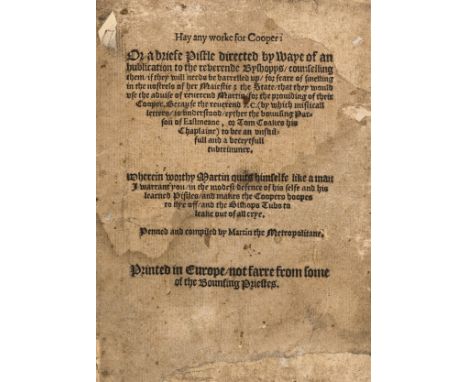 Hay any worke for Cooper:
Or a briefe Pistle directed by waye of an
hublication to the reverende Byshopps/ counselling
them/ if they will needs be barrelled up/ for feare of smelling
in the nostrels of her Maiestie & the State/ that they would
use the advise of reverend Martin/ for the providing of their
Cooper. Because the reverend T.C. (by which misticall
letters/ is understood/ eyther the bounsing Par-
son of Eastmeane, or Tom Coakes his
Chaplaine) to bee an unskil-
full and a deceytfull
tubtrimmer.
Wherein worthy Martin quits himselfe like a man
I warrant you/ in the modest defence of his selfe and his
learned Pistles/ and makes the Coopers hoopes
to flye off/ and the Bishops Tubs to
leake out of all crye.
Penned and compiled by Martin the Metropolitane.
Printed in Europe/ not farre from some
of the Bounsing Priestes.